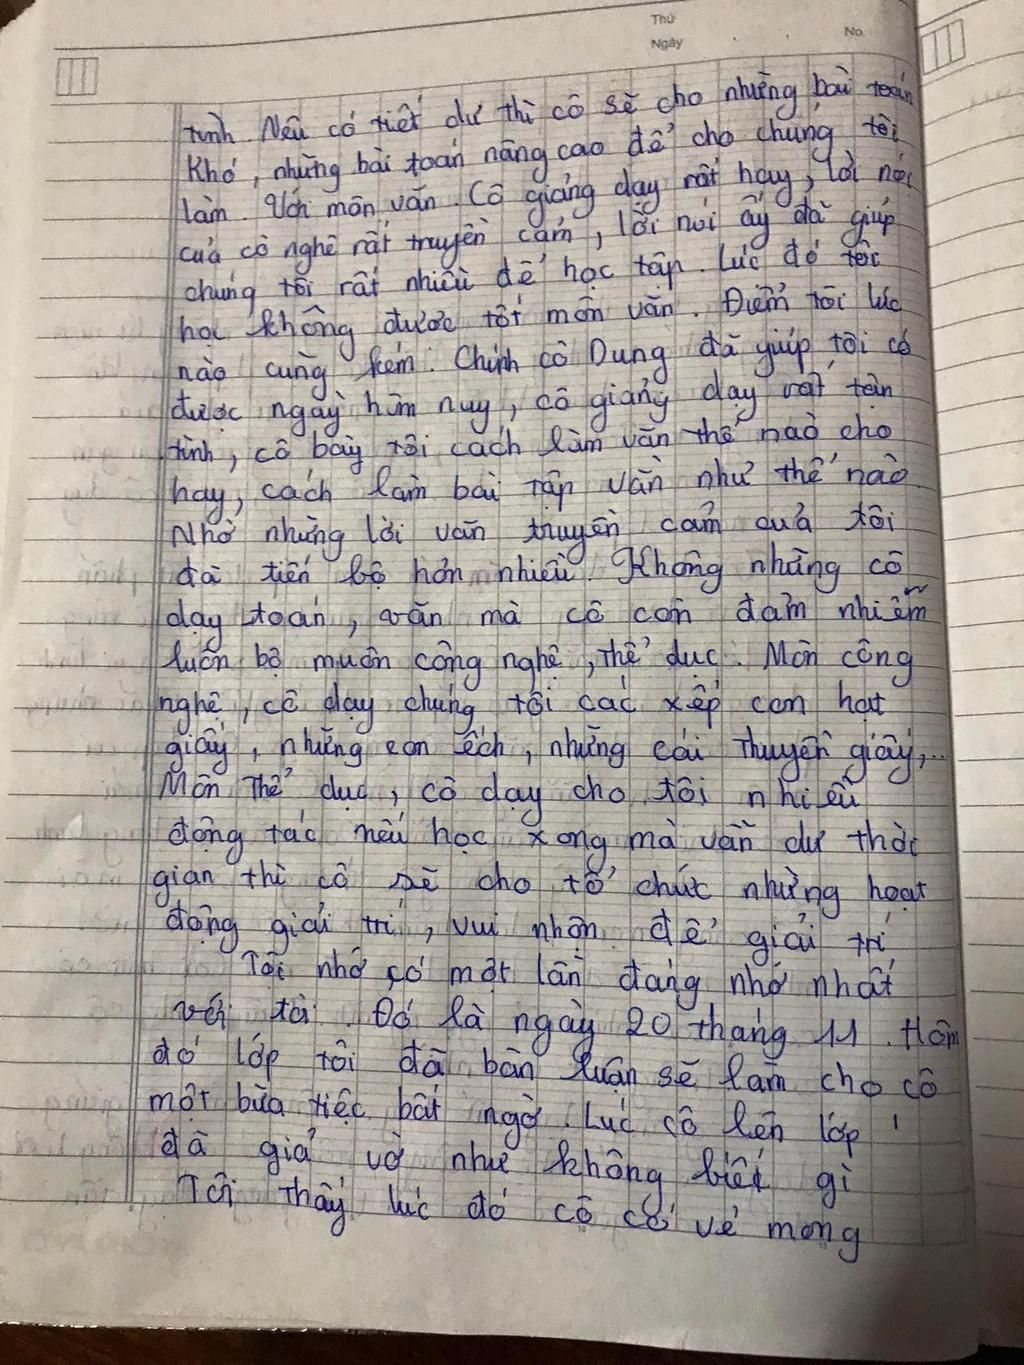 Thứ
Ngày
No.
tình. Nếu có tiết dư thì cô sẽ cho những bài toán
khó, những bài toán nâng cao để cho chúng tôi
làm. Với môn văn. Cô giảng dạy rất hay, lời nói
của cô nghê rất truyền cảm, lời nói ấy đã giúp
chúng tôi rất nhiều để học tập. Lúc đó tôi
học không được tốt môn văn. Điểm tôi lúc
nào cũng kém. Chính cô Dung đã giúp tôi có
được ngày hôm nuy, cô giảng dạy rất tận
tình, cô bày tôi cách làm văn thế nào cho
hay, cách làm bài tập văn như thế nào.
Nhờ những lời văn truyền cảm quả tôi
đã tiến bộ hơn nhiều. Không những cô
dạy toán, văn mà cô còn đảm nhiễm
luôn bộ muôn công nghệ, thể dục. Môn công
nghệ, cô dạy chúng tôi các xếp con hạt
giấy, những con ếch, những cái thuyền giấy,...
Môn thể dục, cô dạy cho tôi nhiều
động tác nếu học xong mà vẫn dư thời
gian thì cô sẽ cho tổ chức những hoạt
động giải trí, vui nhộn để giải trí
Tôi nhớ có một lần đáng nhớ nhất
với tôi. Đó là ngày 20 tháng 11. Hôm
đó lớp tôi đã bàn luận sẽ làm cho cô
một bữa tiệc bất ngờ. Lúc cô lên lớp
đã giả vờ như không biết gì
Tôi thấy lúc đó cô có vẻ mong